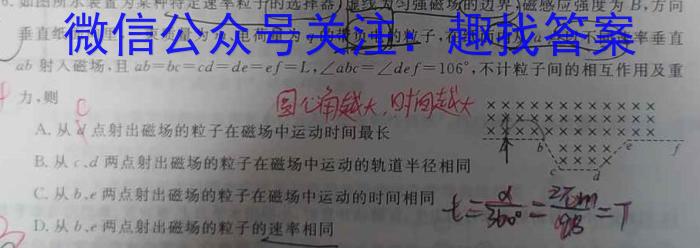 6. 如图所示装置为某种特定速率粒子的选择器,虚线为匀强磁场的边界,磁感应强度为 B,方向
垂直纸
微信公众号关注:趣找答案
ab 射入磁场,且 ab=bc=cd=de=ef=L,∠abc=∠def=106°,不计粒子间的相互作用及重
力,则
c
圆心角越大,时间越大
A. 从 d 点射出磁场的粒子在磁场中运动时间最长
B. 从 c、d 两点射出磁场的粒子在磁场中运动的轨道半径相同
C. 从 b、e 两点射出磁场的粒子在磁场中运动的时间相同
D. 从 b、e 两点射出磁场的粒子的速率相同
a b c d e f
t=α/360°=2πm/qB=T